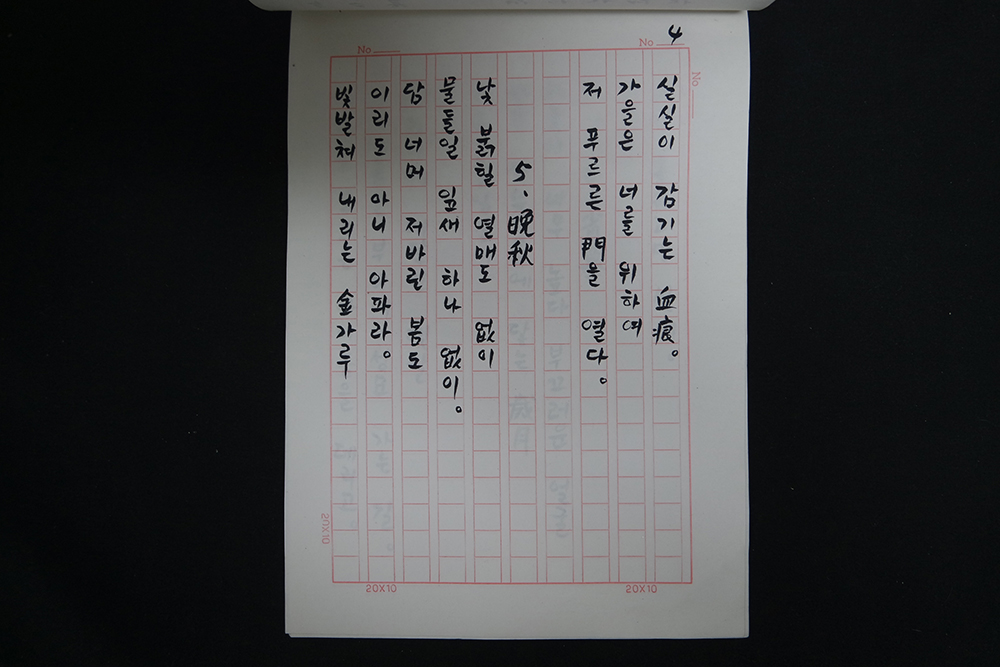 No 4
No
No
실실이 감기는 血痕。
가을은 너를 위하여
저 푸르른 門을 열다。
5、晩秋
낯 붉힐 열매도 없이
물들일 잎새 하나 없이。
담 너머 저바릴 봄도
이리도 아니 아파라。
빛발쳐 내리는 金가루
20X10
20X10
20X10